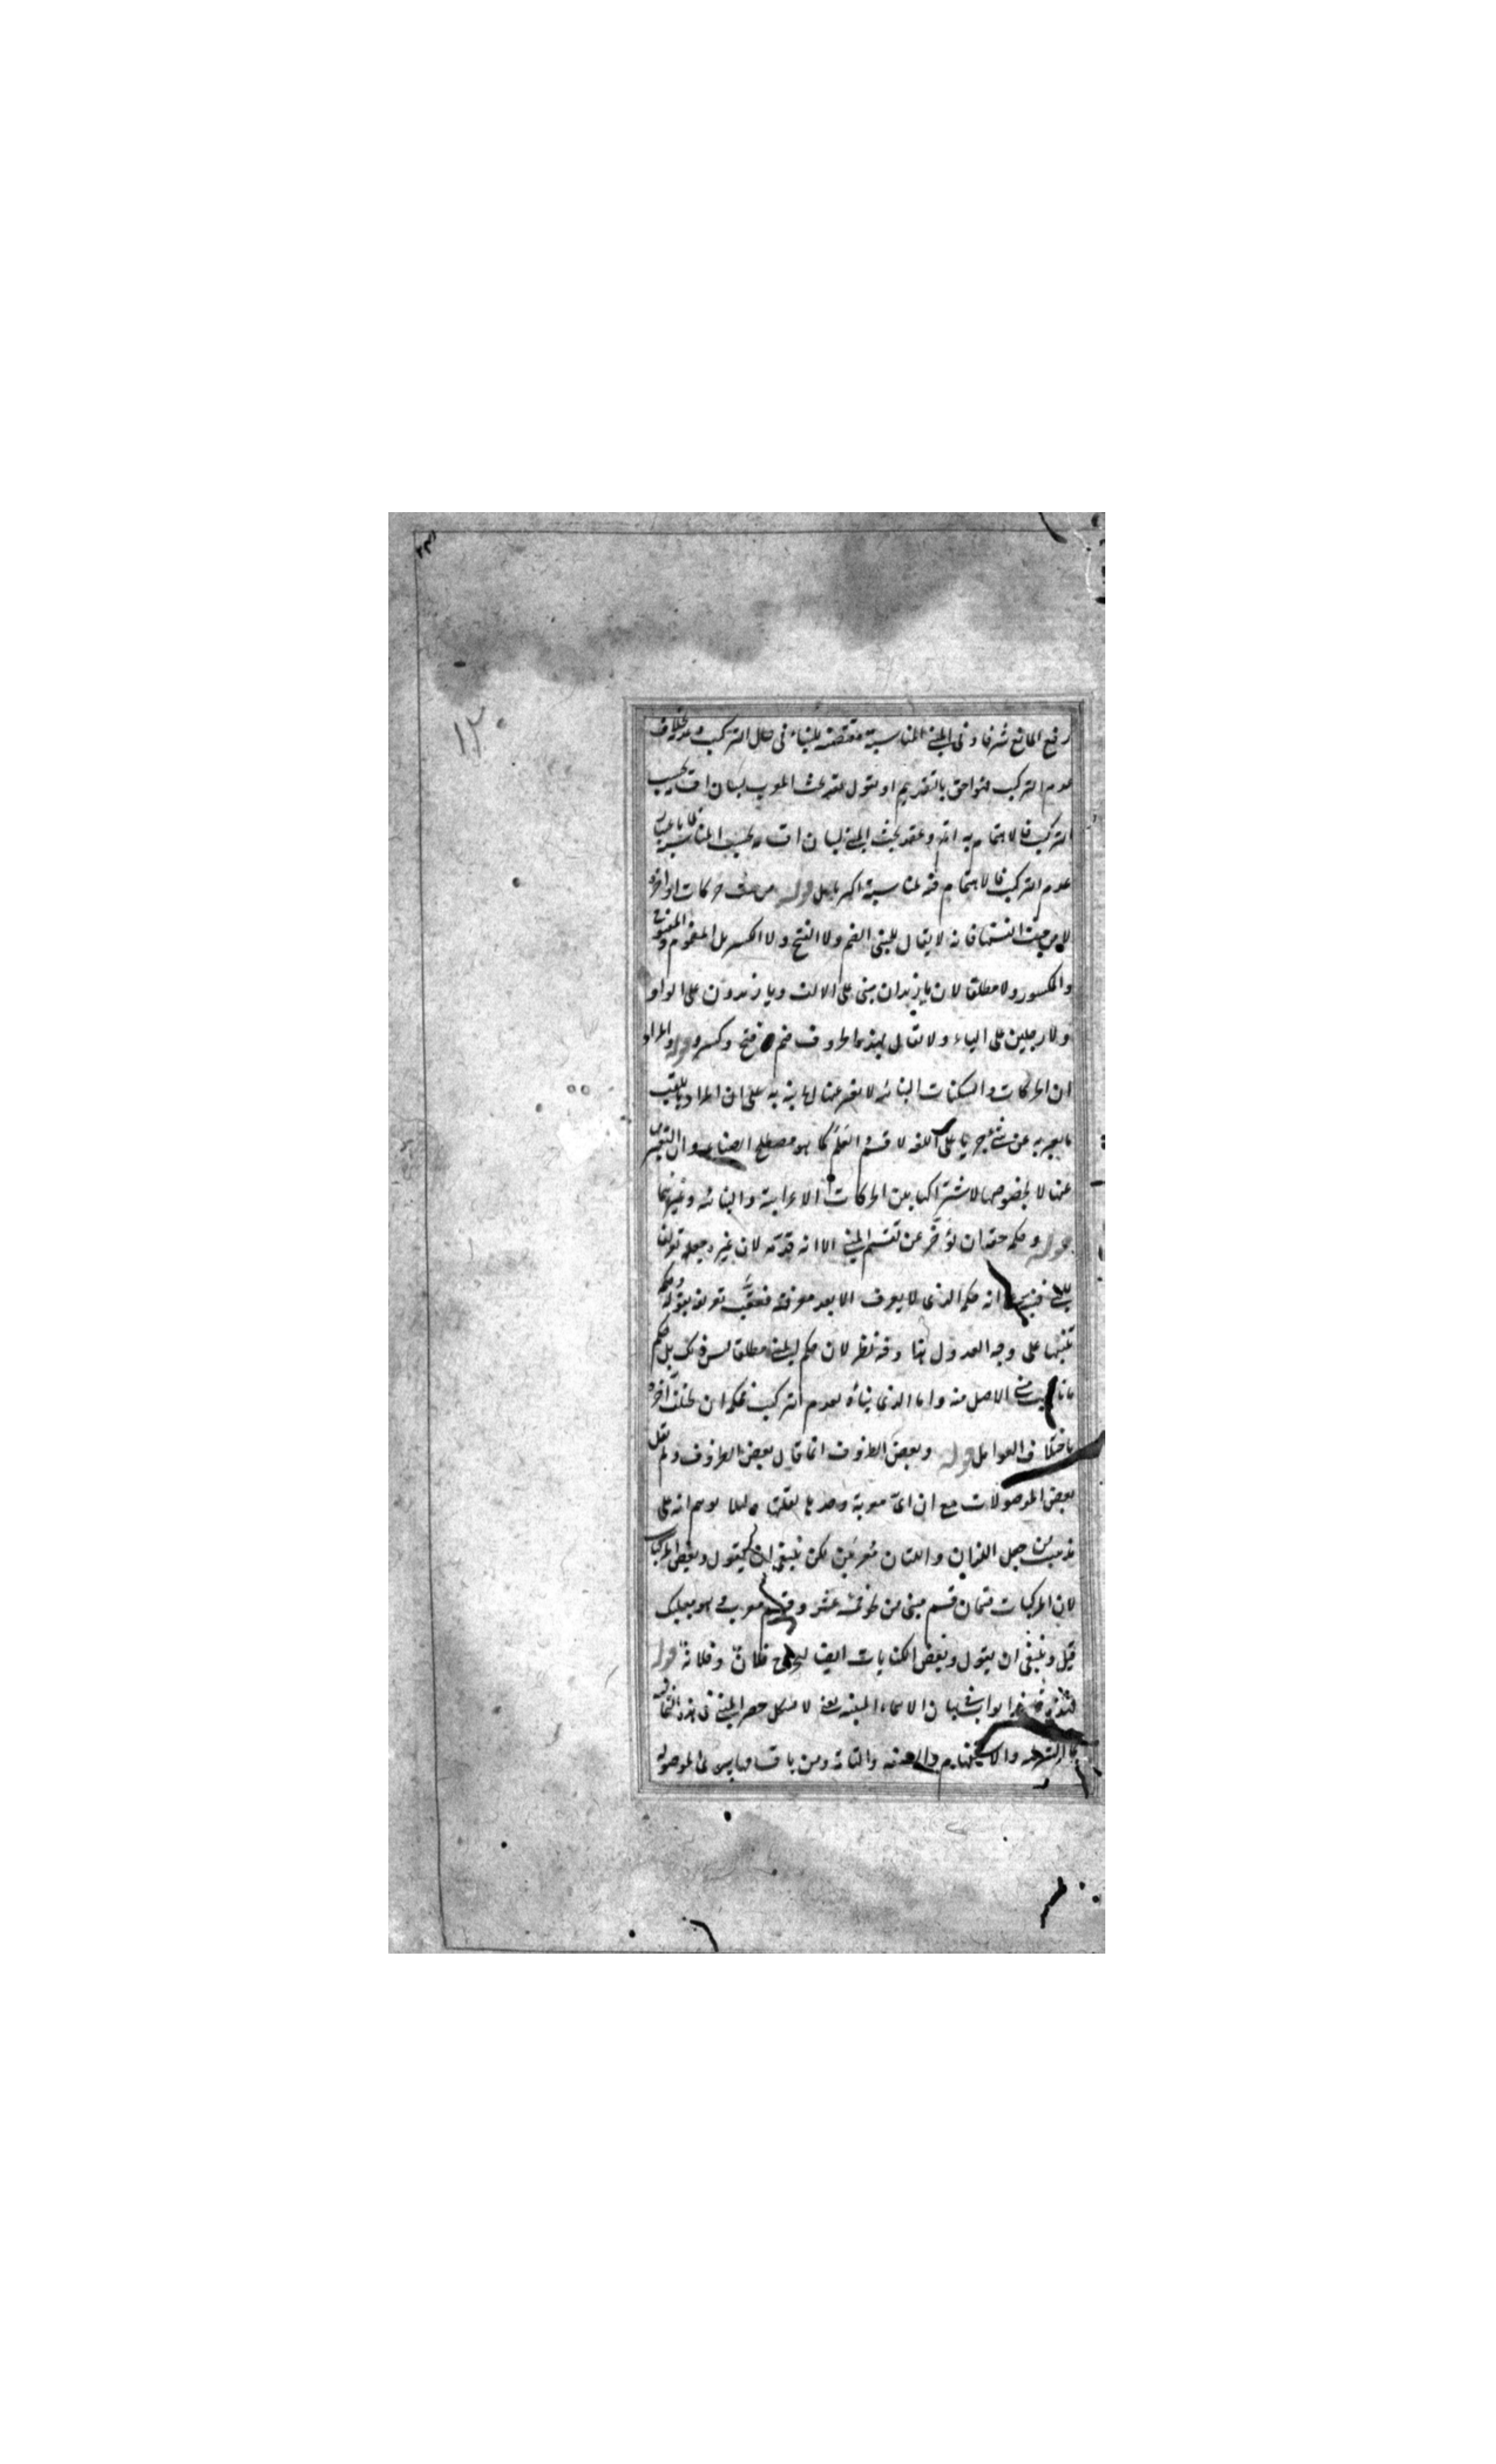 رفع المانع شرفا وفى المبنى المناسبة مقتضية للبناء فى حال التركيب وعدمه بخلاف
عدم التركيب فهو احق بالتقديم او نقول لبيان اقسامه بحسب
التركيب فالاهتمام به اتم وعقد بحث المبنى لبيان اقسامه بحسب المناسبة
عدم التركيب فالاهتمام فيه لمناسبة اكثر قوله من حيث حركات اواخره
لا من حيث انفسها فانه لا يقال للمبنى الضم ولا الفتح ولا الكسر بل المضموم والمفتوح
والمكسور ولا مطلقا لان يا زيدان مبنى على الالف ويا زيدون على الواو
ولا رجلين على الياء ولا يقال لهذه الحروف ضم وفتح وكسر قوله والمراد
ان الحركات والسكنات البنائية لا يعبر عنها نبه به على ان المراد باللقب
ما يعبر به عن شئ جريا على اللغة لا قسم العلم كما هو مصطلح الصناعة وان التعبير
عنها لا لخصوصها لاشتراكها بين الحركات الاعرابية والبنائية وغيرهما
قوله وحكمه حقه ان يؤخر عن تقسيم المبنى الا انه قدمه لان غيره جعله تعريفا
انه حكم الذى لا يعرف الا بعد معرفته فعقب تعريفه بقوله وحكمه
تنبيها على وجه العدول هنا وفيه نظر لان حكم المبنى مطلقا ليس ذلك بل حكم
ما ناسب مبنى الاصل منه واما الذى بناؤه لعدم التركيب فحكمه ان يختلف آخره
باختلاف العوامل قوله وبعض الظروف انما قال بعض الظروف ولم يقل
بعض الموصولات مع ان اى معربة وحدها لقلتها ولئلا يوهم انه على
مذهب من جعل اللذان واللتان معربين لكن ينبغى ان يقول وبعض المركبات
لان المركبات قسمان قسم مبنى من نحو خمسة عشر وقسم معرب وهو بعلبك
قيل وينبغى ان يقول وبعض الكنايات ايضا ليخرج فلان وفلانة قوله
ابواب بيان الاسماء المبنية يعنى لا يشكل حصر المبنى فى هذه الثمانية
بما الشرطية والاستفهامية والصفة والتامة ومن باقسامها سوى الموصولة